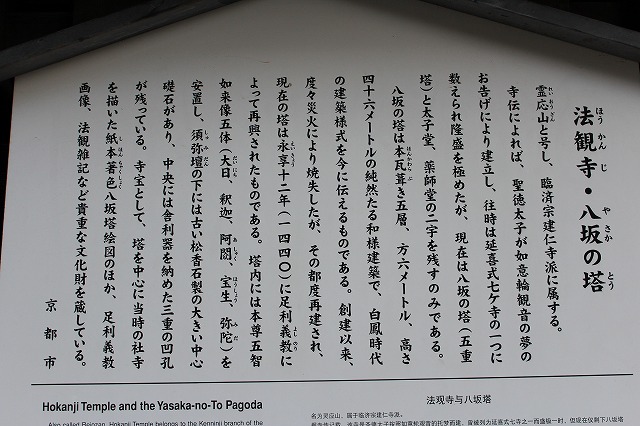 法観寺・八坂の塔
霊応山と号し、臨済宗建仁寺派に属する。
寺伝によれば、聖徳太子が如意輪観音の夢の
お告げにより建立し、往時は延喜式七ケ寺の一つに
数えられ隆盛を極めたが、現在は八坂の塔（五重
塔）と太子堂、薬師堂の二宇を残すのみである。
八坂の塔は本瓦葺き五層、方六メートル、高さ
四十六メートルの純然たる和様建築で、白鳳時代
の建築様式を今に伝えるものである。創建以来、
度々災火により焼失したが、その都度再建され、
現在の塔は永享十二年（一四四〇）に足利義教に
よって再興されたものである。塔内には本尊五智
如来像五体（大日、釈迦、阿閦、宝生、弥陀）を
安置し、須弥壇の下には古い松香石製の大きい中心
礎石があり、中央には舎利器を納めた三重の凹孔
が残っている。寺宝として、塔を中心に当時の社寺
を描いた紙本著色八坂塔絵図のほか、足利義教
画像、法観雑記など貴重な文化財を蔵している。
京都市
Hokanji Temple and the Yasaka-no-To Pagoda
Also called Reiozan, Hokanji Temple belongs to the Kenninji branch of the
法观寺与八坂塔
名为灵应山，属于临济宗建仁寺派。